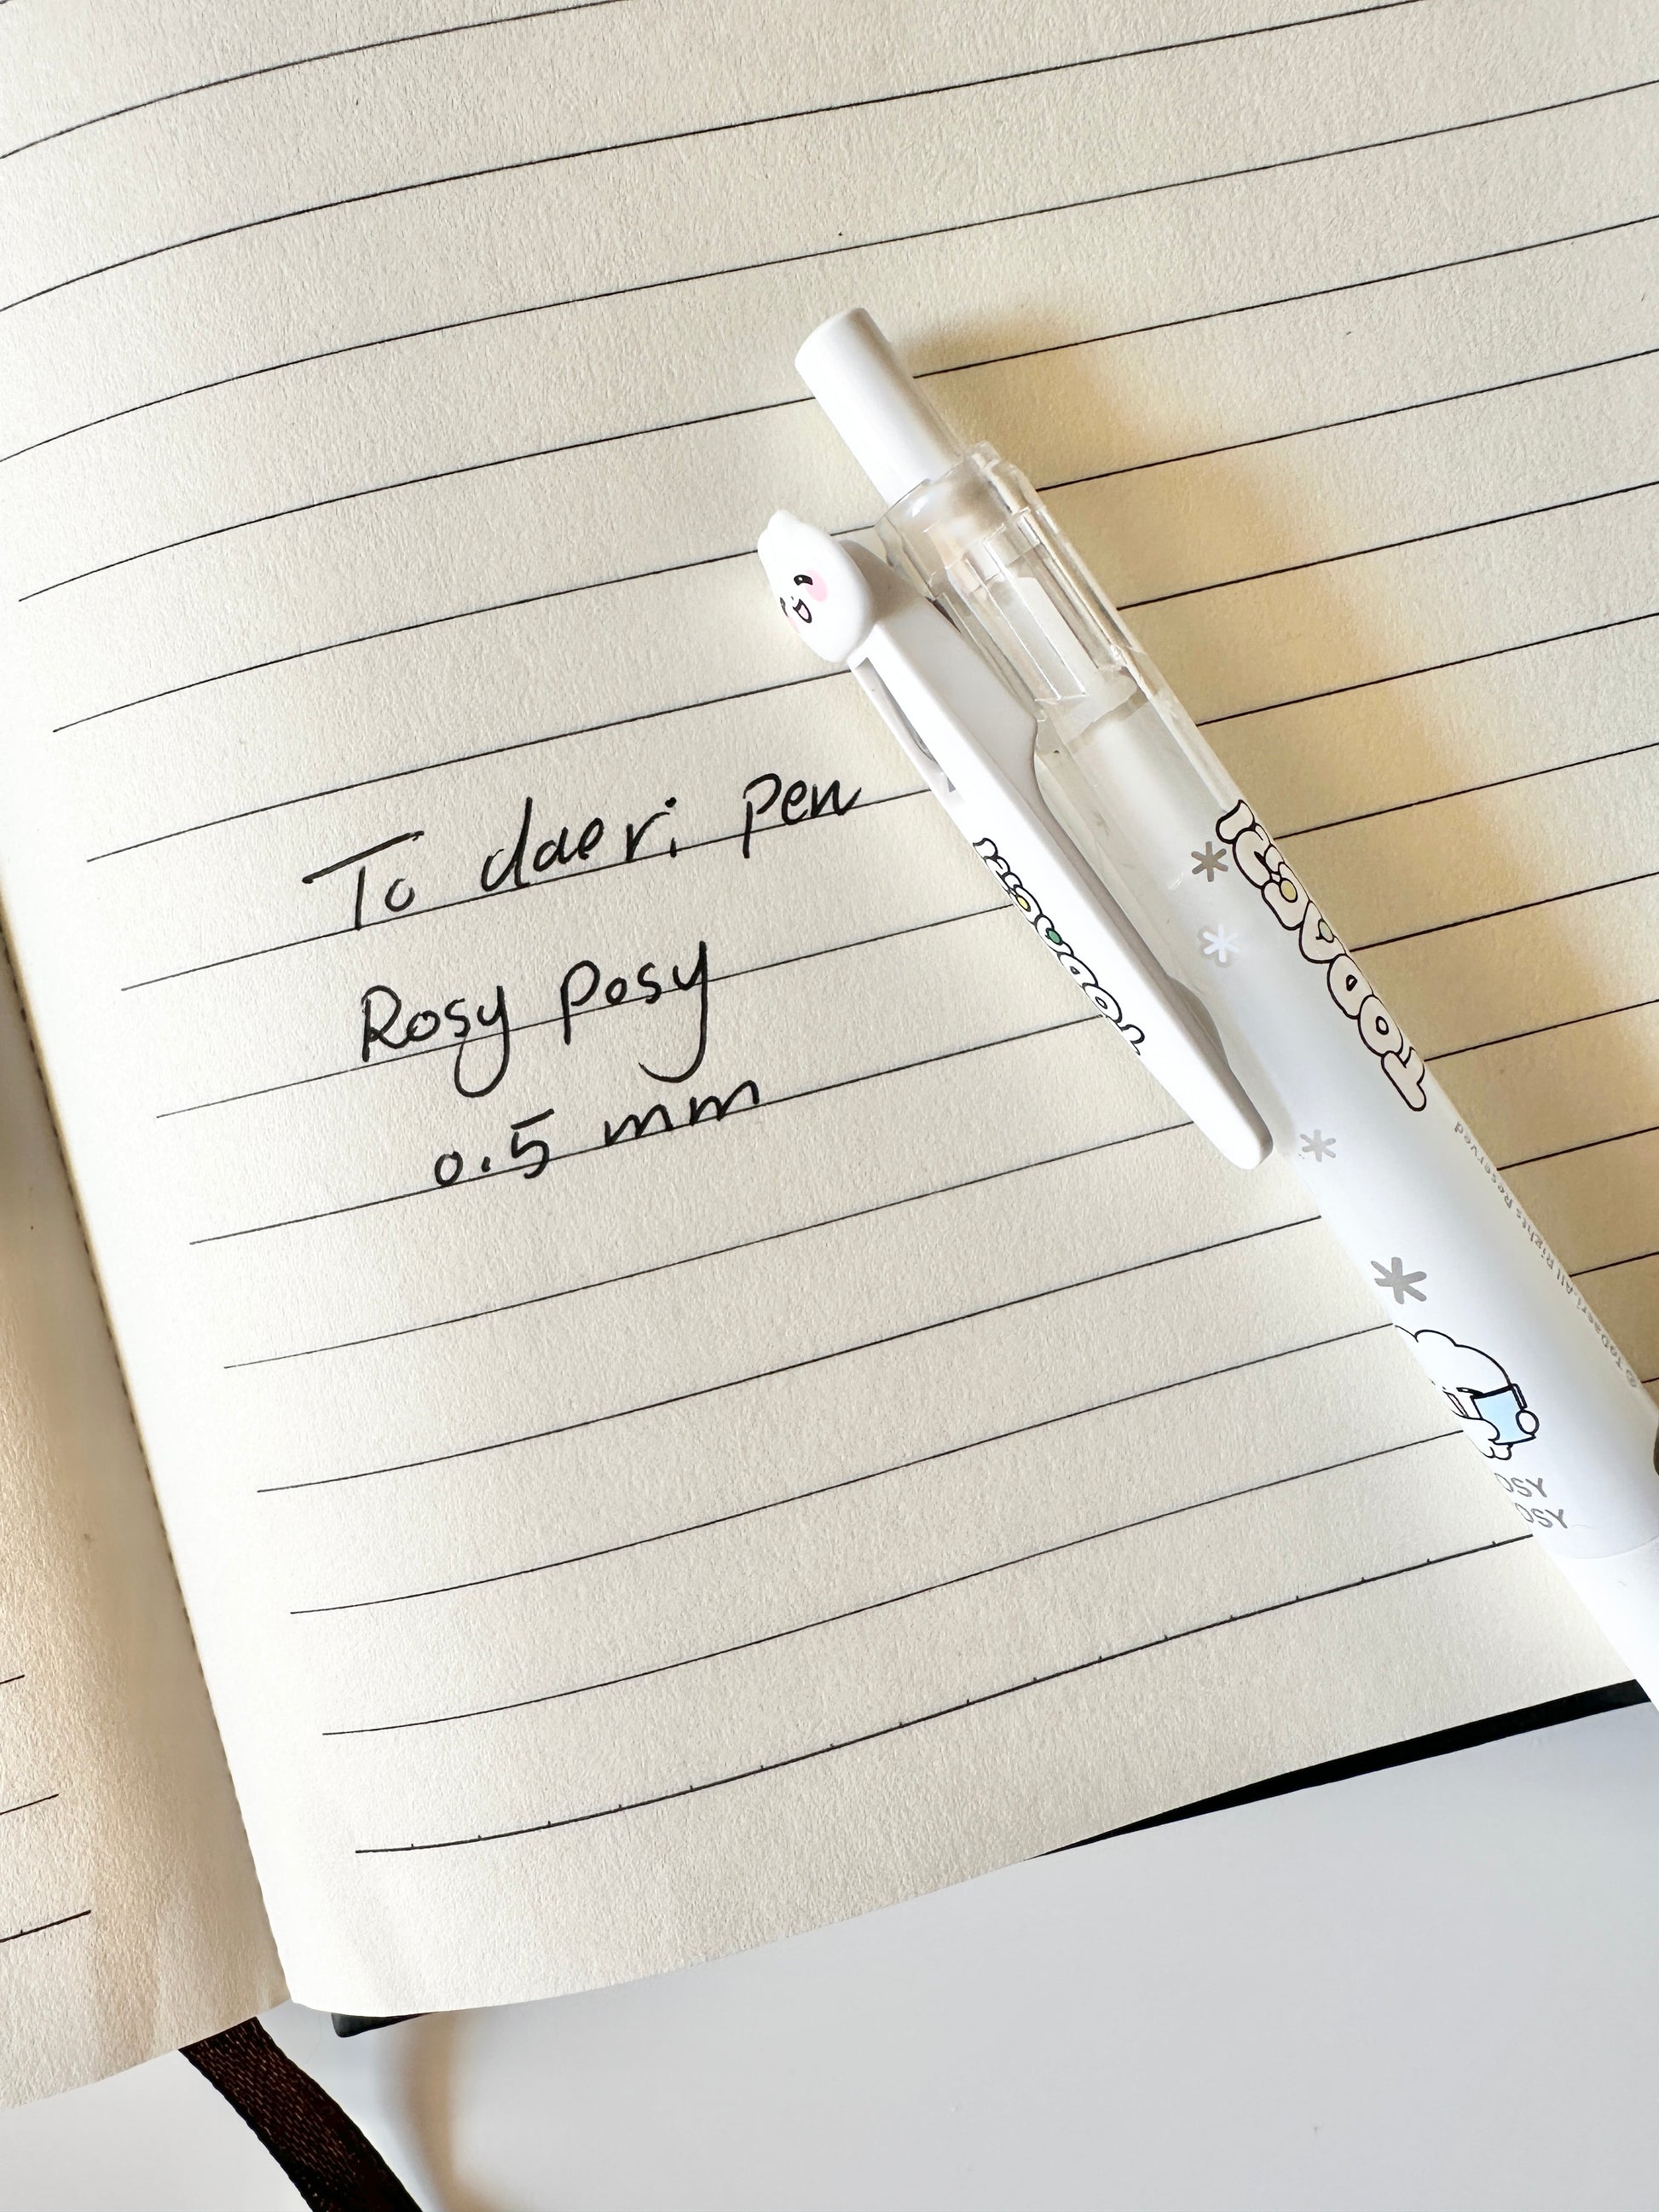 To daeri pen
Rosy Posy
0.5 mm
TODAERI
TODAERI
© ToDaeri All Rights Reserved
OSY
OSY